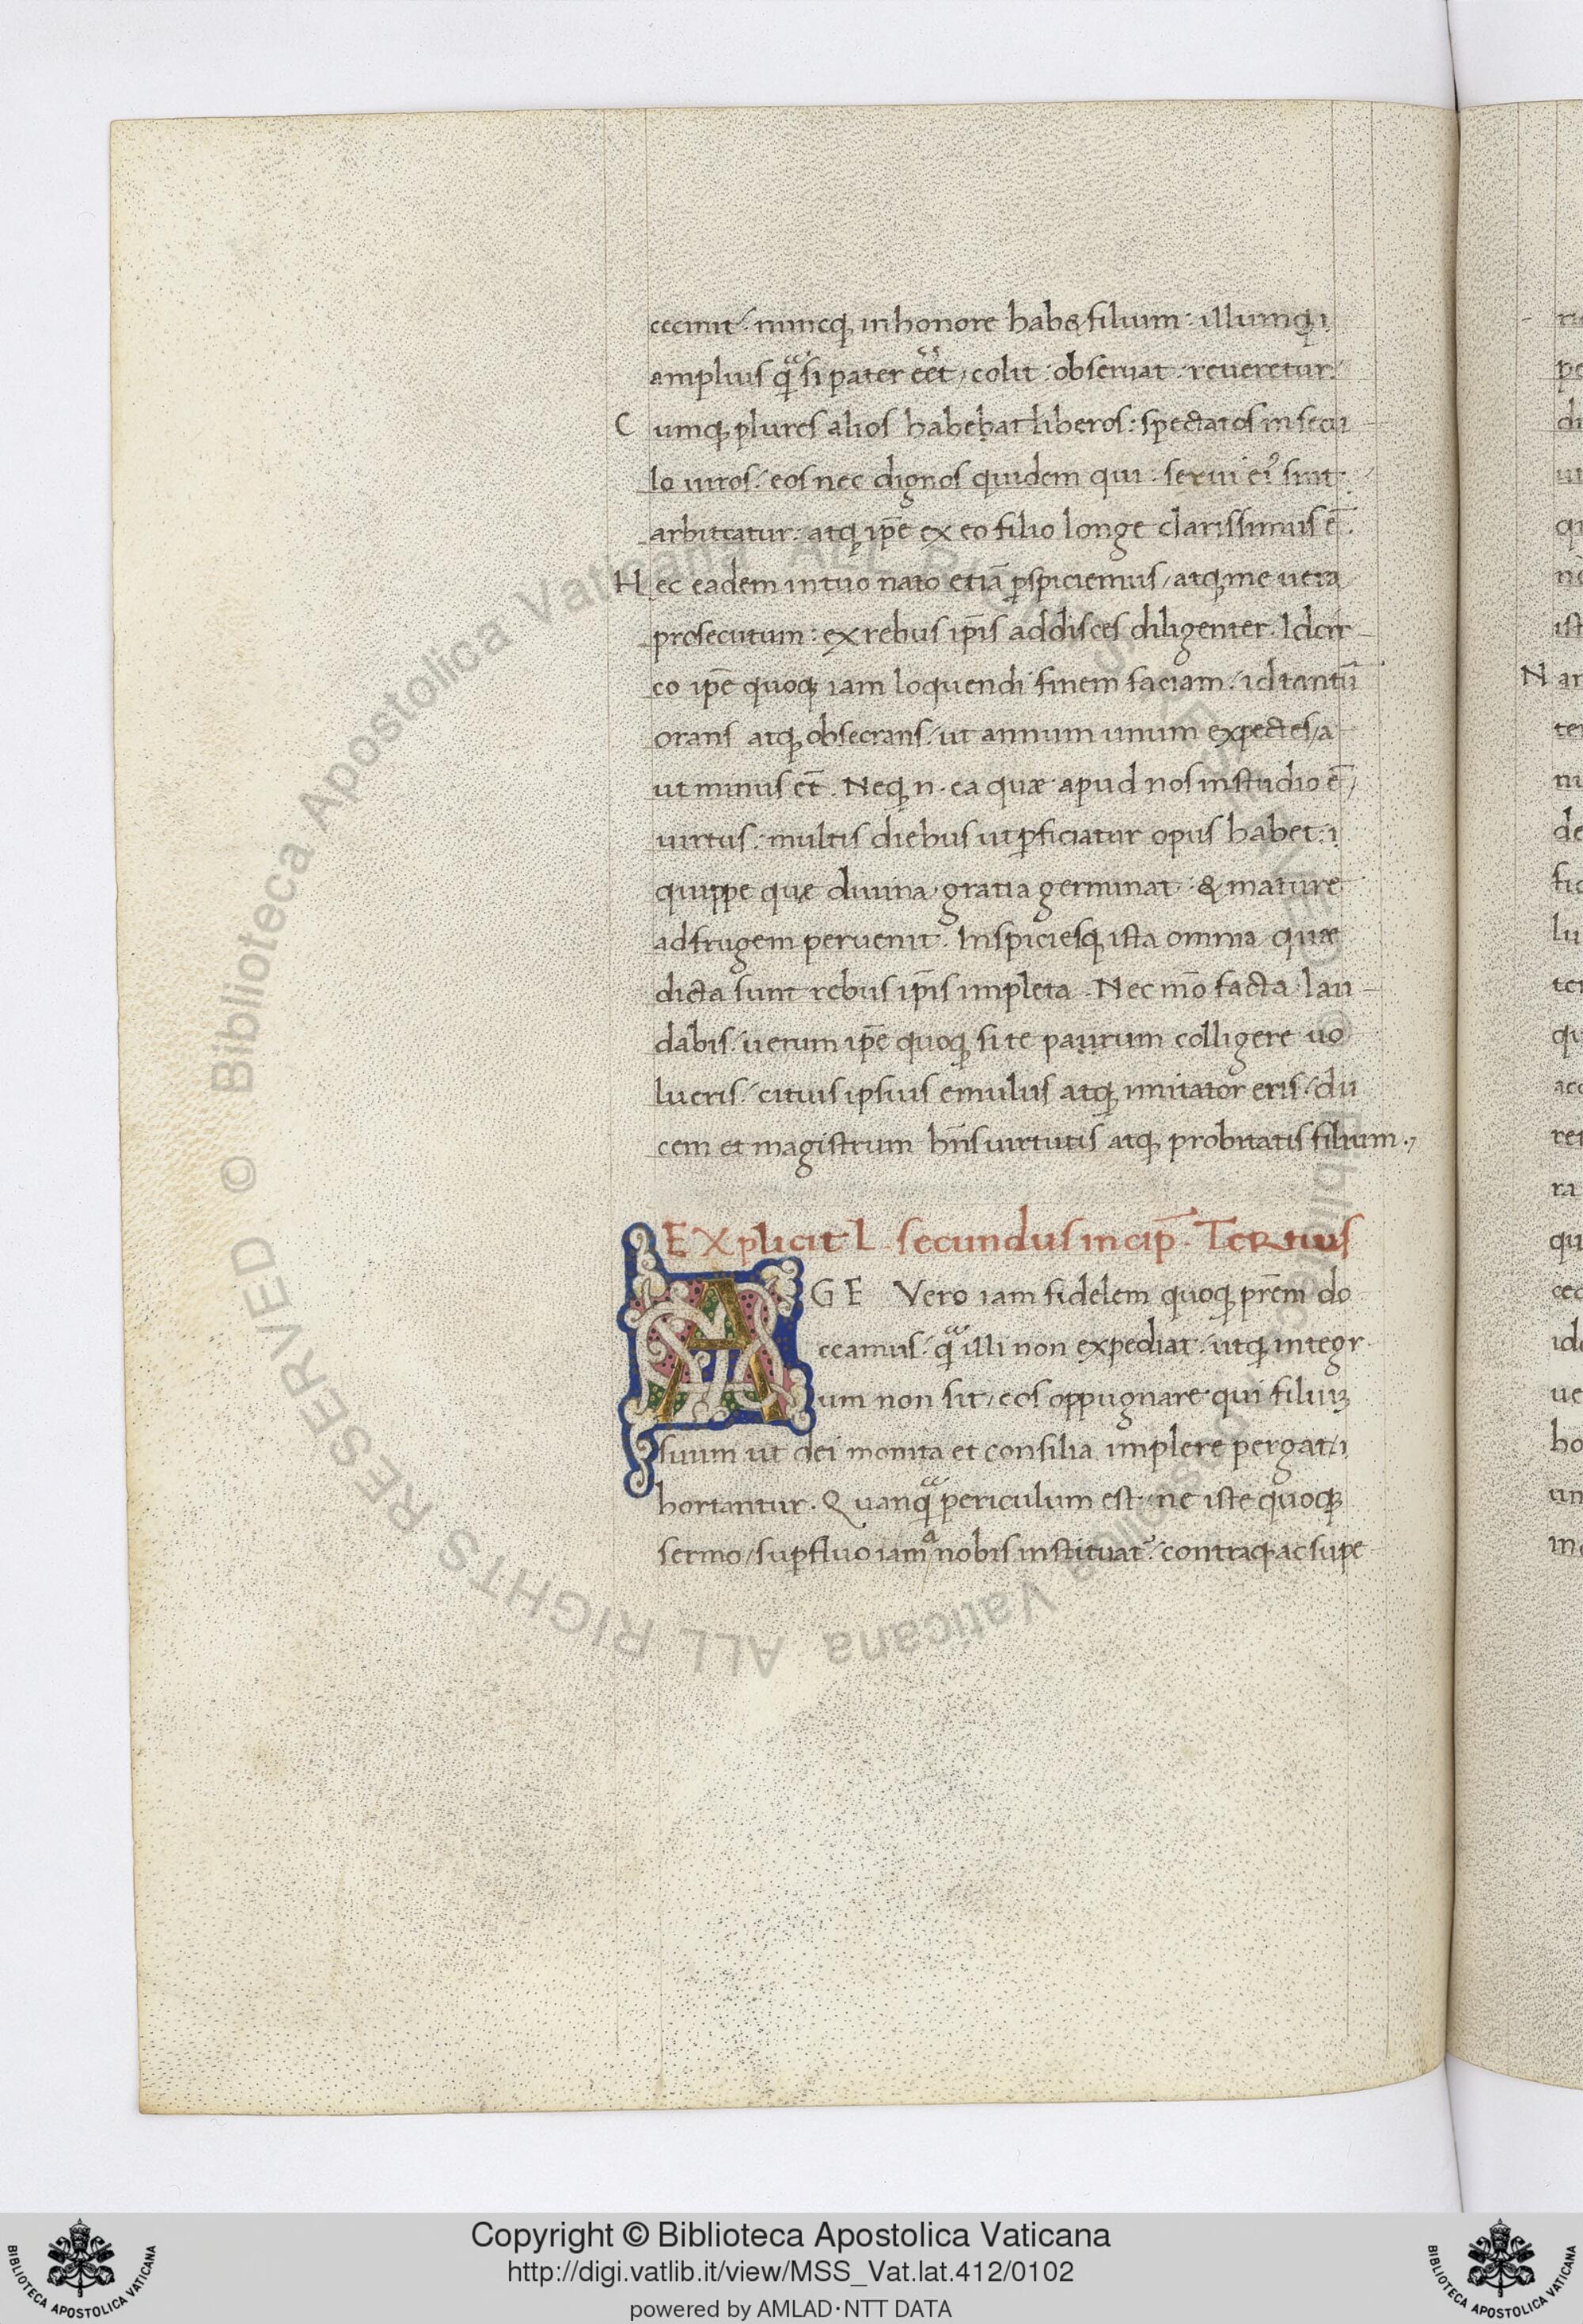 cecinit: nuncq; in honore habet filium: illumq; i
amplius qͣ si pater eet, colit: obseruat: reueretur.
C umq; plures alios habebat liberos: spectatos in secu
lo uiros: eos nec dignos quidem qui serui eiꝰ sint
arbitratur: atq; ip̄e ex eo filio longe clarissimus ē.
H ec eadem in tuo nato etiā ꝑspiciemus, atq; me uera
prosecutum: ex rebus ip̄is addisces diligenter. Idcir
co ip̄e quoq; iam loquendi finem faciam: id tantū
orans atq; obsecrans: ut annum unum expectes, a
ut minus et̄. Neq; n. ea quæ apud nos in studio ē,
uirtus: multis diebus ut ꝑficiatur opus habet: i
quippe quę diuina gratia germinat: & mature
ad frugem peruenit. Inspiciesq; ista omnia quæ
dicta sunt rebus ip̄is impleta. Nec mō facta lau
dabis: uerum ip̄e quoq; si te paurum colligere uo
lueris: cituis ipsius emulus atq; imitator eris: du
cem et magistrum hn̄s uirtutis atq; probitatis filium.,
EXplicit L. secundus incip̄. TeRtius
AGE Vero iam fidelem quoq; prēm do
ceamus: qͣ illi non expediat: utq; integr
um non sit, eos oppugnare qui filiuꝫ
suum ut dei monita et consilia implere pergat, i
hortantur. Quanqͣ periculum est: ne iste quoq;
sermo, suꝑfluo iam a nobis instituat̄: contraq; ac supe
N ar
© Biblioteca Apostolica Vaticana ALL RIGHTS RESERVED © Biblioteca Apostolica Vaticana ALL RIGHTS RESERVED
Copyright © Biblioteca Apostolica Vaticana
http://digi.vatlib.it/view/MSS_Vat.lat.412/0102
powered by AMLAD·NTT DATA
BIBLIOTECA APOSTOLICA VATICANA
BIBLIOTECA APOSTOLICA VATICANA